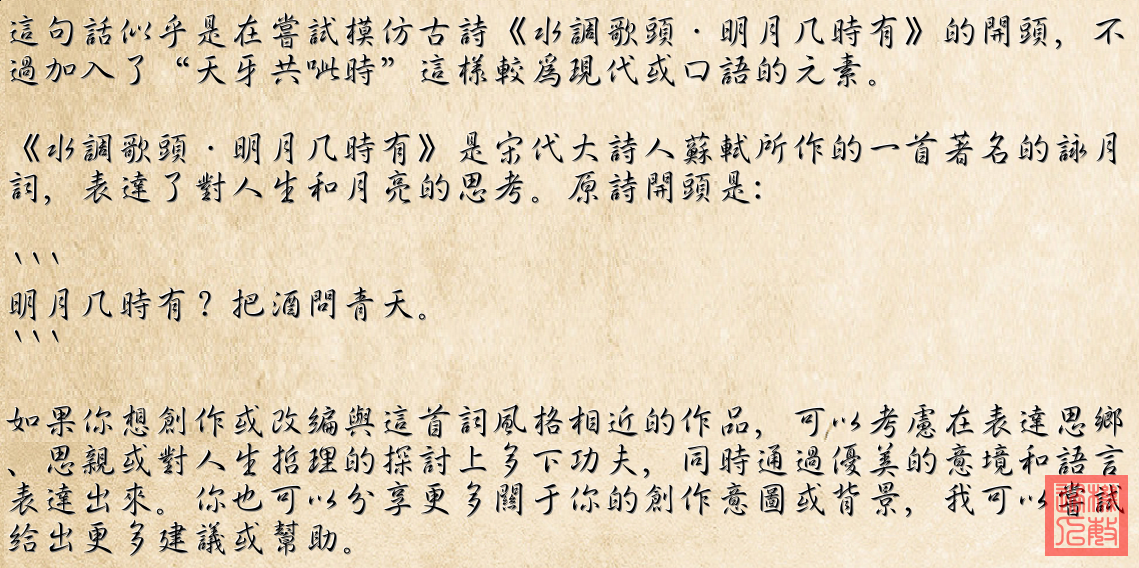 這句話似乎是在嘗試模仿古詩《水調歌頭·明月几時有》的開頭，不
過加入了“天牙共呲時”這樣較爲現代或口語的元素。
《水調歌頭·明月几時有》是宋代大詩人蘇軾所作的一首著名的詠月
詞，表達了對人生和月亮的思考。原詩開頭是：
\`\`\`
明月几時有？把酒問青天。
\`\`\`
如果你想創作或改编與這首詞風格相近的作品，可以考慮在表達思鄉
、思親或對人生哲理的探討上多下功夫，同時通過優美的意境和語言
表達出來。你也可以分享更多關于你的創作意圖或背景，我可以嘗試
給出更多建議或幫助。